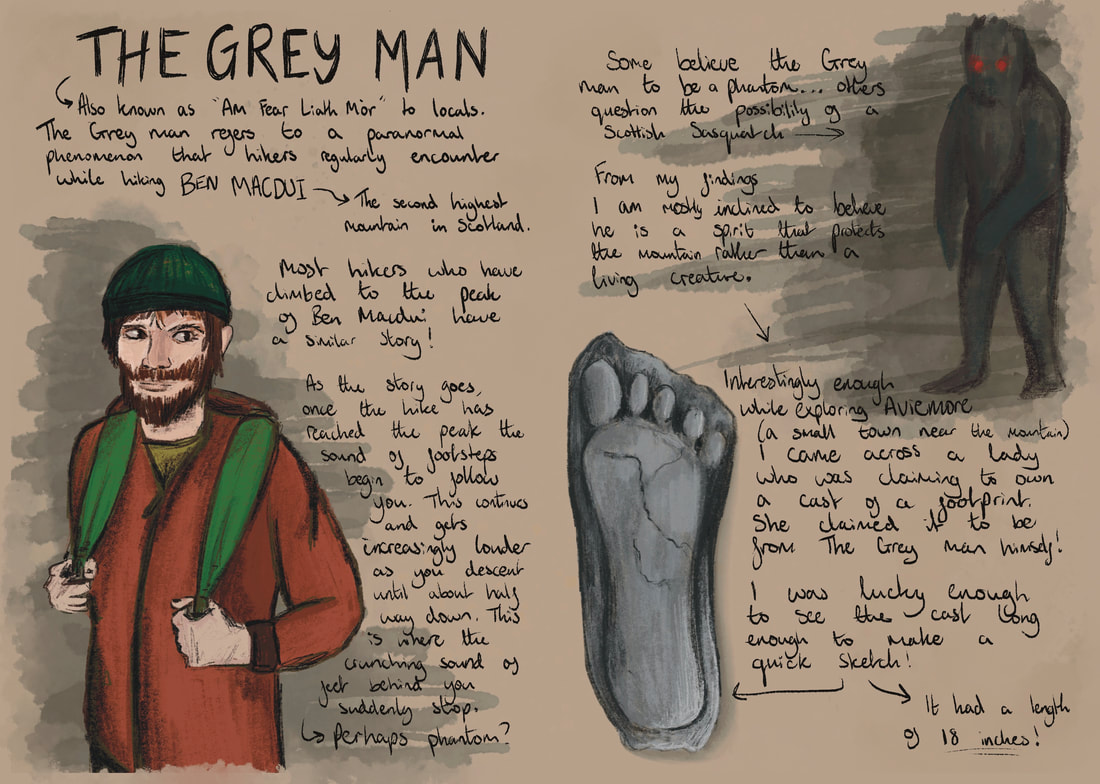 THE GREY MAN
Also known as "Am Fear Liath Mòr" to locals.
The Grey man refers to a paranormal
phenomenon that hikers regularly encounter
while hiking BEN MACDUI
The second highest
mountain in Scotland.
Most hikers who have
climbed to the peak
of Ben Macdui have
a similar story!
As the story goes,
once the hike has
reached the peak the
sound of footsteps
begin to follow
you. This continues
and gets
increasingly louder
as you descent
until about half
way down. This
is where the
crunching sound of
feet behind you
suddenly stop.
Perhaps phantom?
Some believe the Grey
man to be a phantom... others
question the possibility of a
Scottish Sasquatch
From my findings
I am mostly inclined to believe
he is a spirit that protects
the mountain rather than a
living creature.
Interestingly enough
while exploring AVIEMORE
(a small town near the mountain)
I came across a lady
who was claiming to own
a cast of a footprint.
She claimed it to be
from The Grey man himself!
I was lucky enough
to see the cast long
enough to make a
quick sketch!
It had a length
of 18 inches!